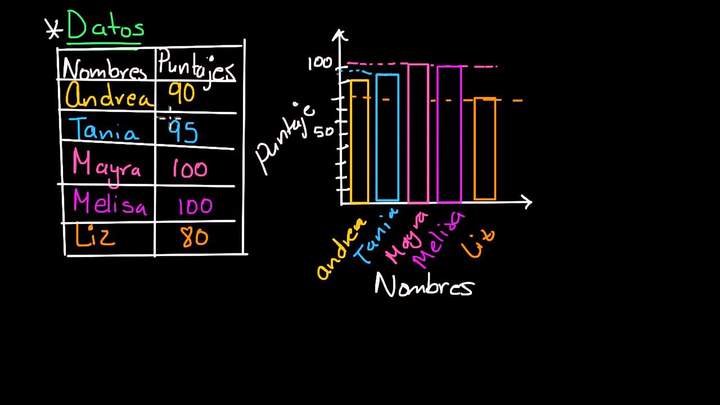 * Datos
Nombres Puntajes
Andrea 90
Tania 95
Mayra 100
Melisa 100
Liz 80
100
50
Puntaje
andrea
Tania
Mayra
Melisa
Liz
Nombres